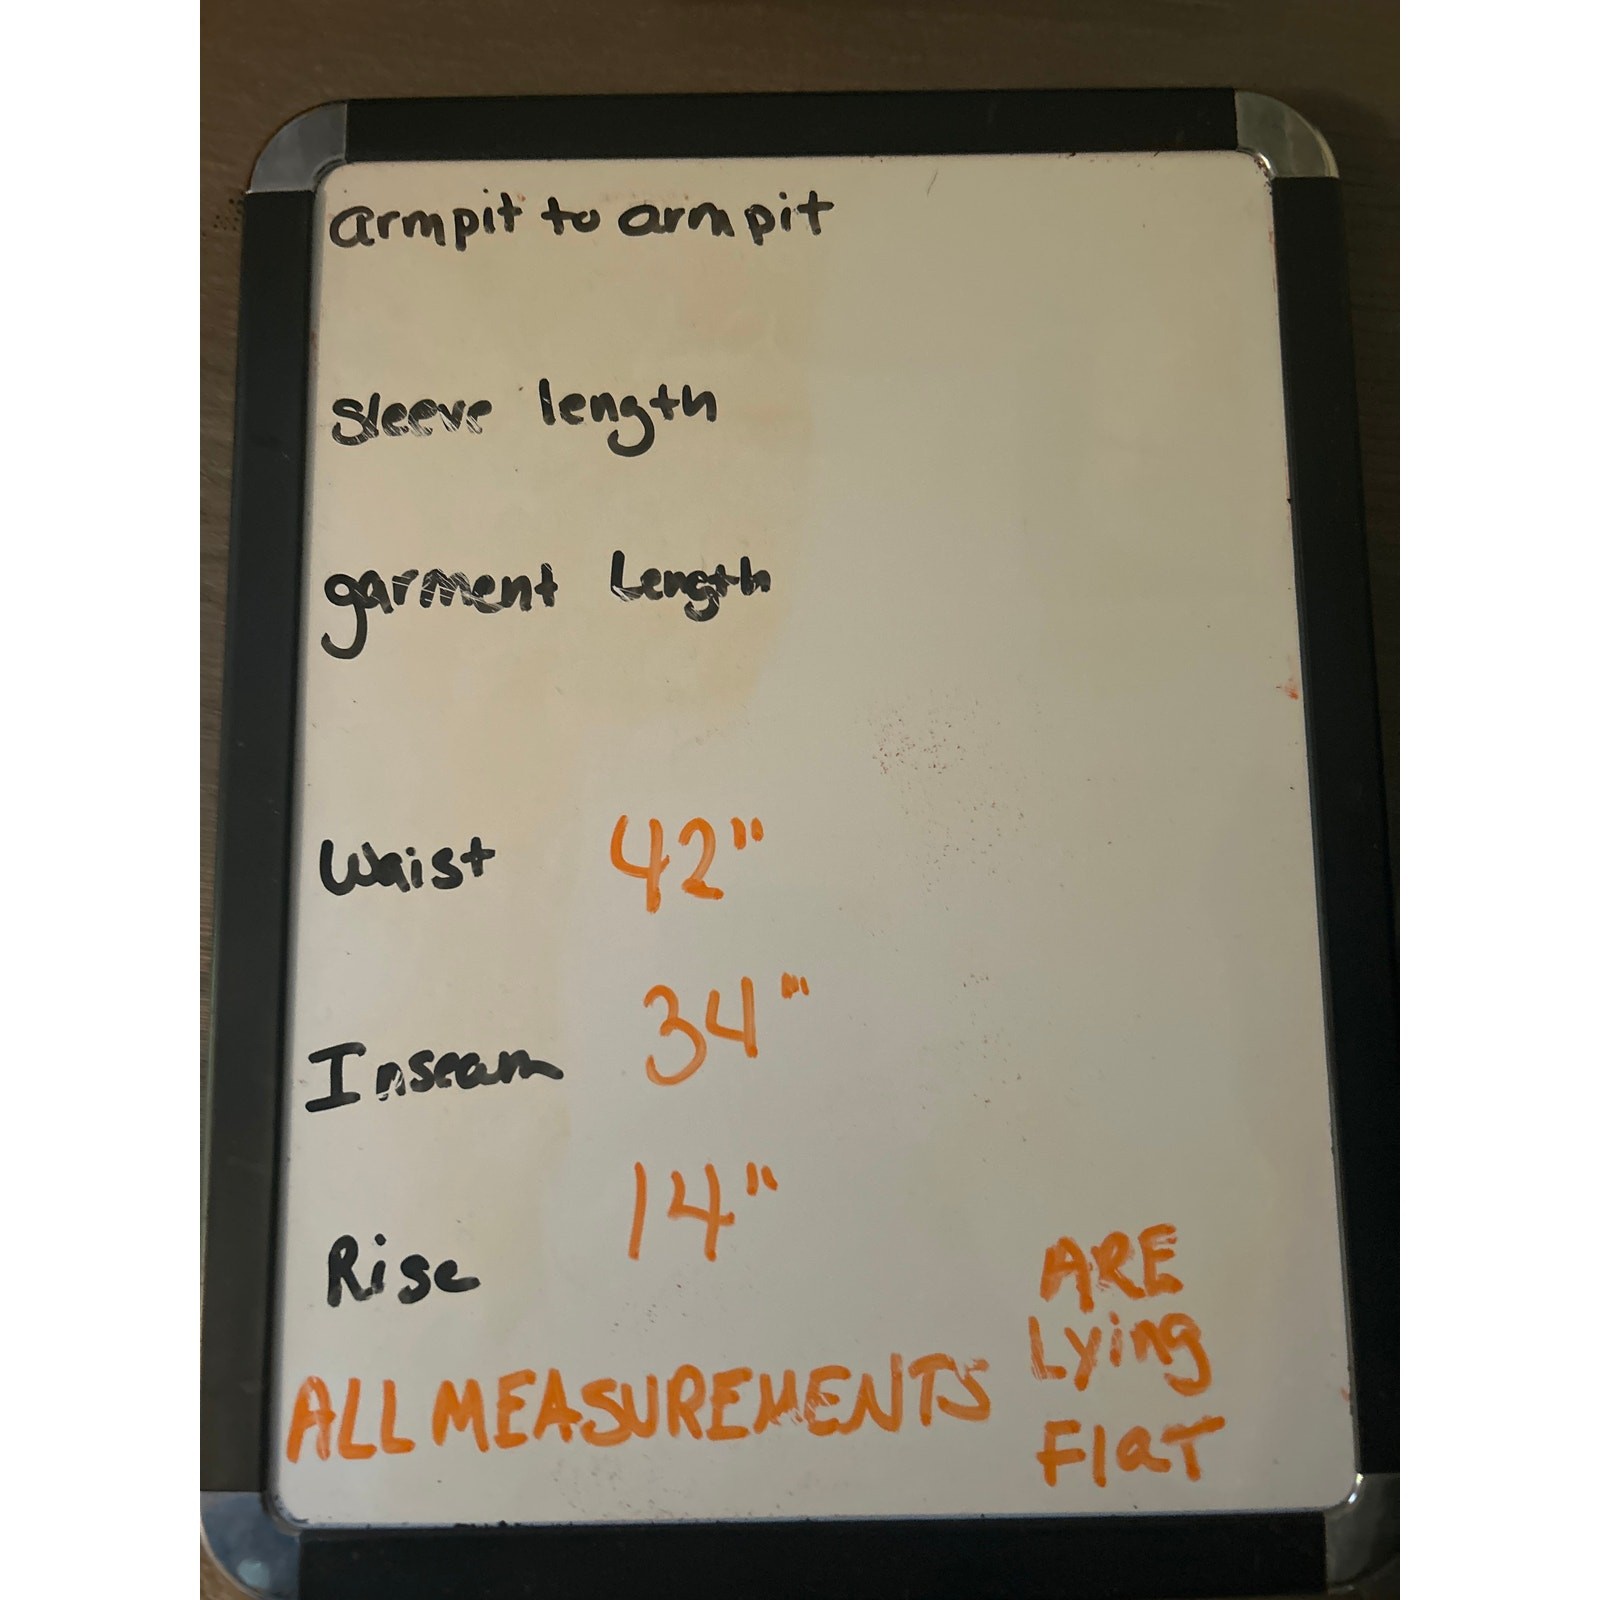 armpit to armpit
sleeve length
garment Length
Waist 42"
Inseam 34"'
Rise 14"
ALL MEASUREMENTS
ARE
Lying
FlaT